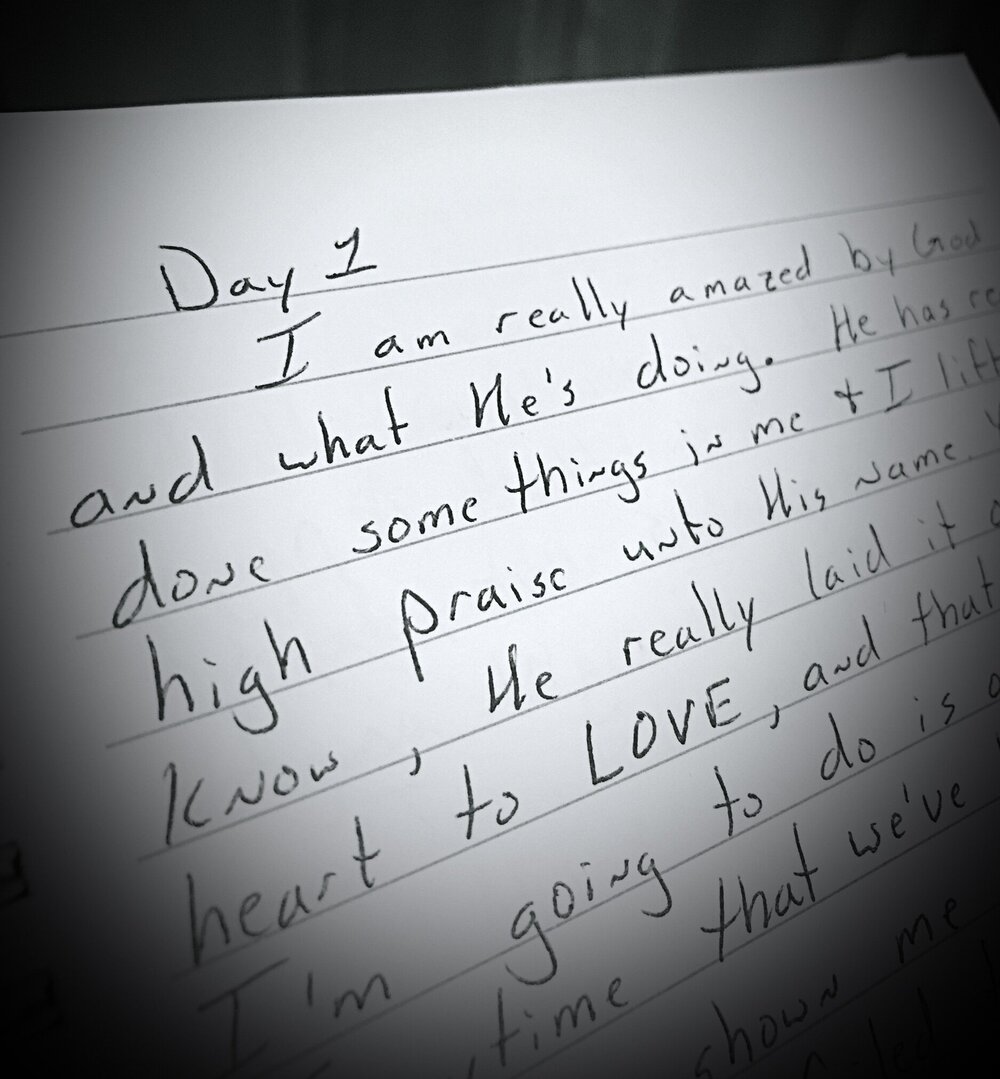 Day 1
I am really amazed by God
and what He's doing. He has
done some things in me + I lift
high praise unto His name.
know, He really laid it
heart to LOVE, and that
I'm going to do is
time that we've
shown me